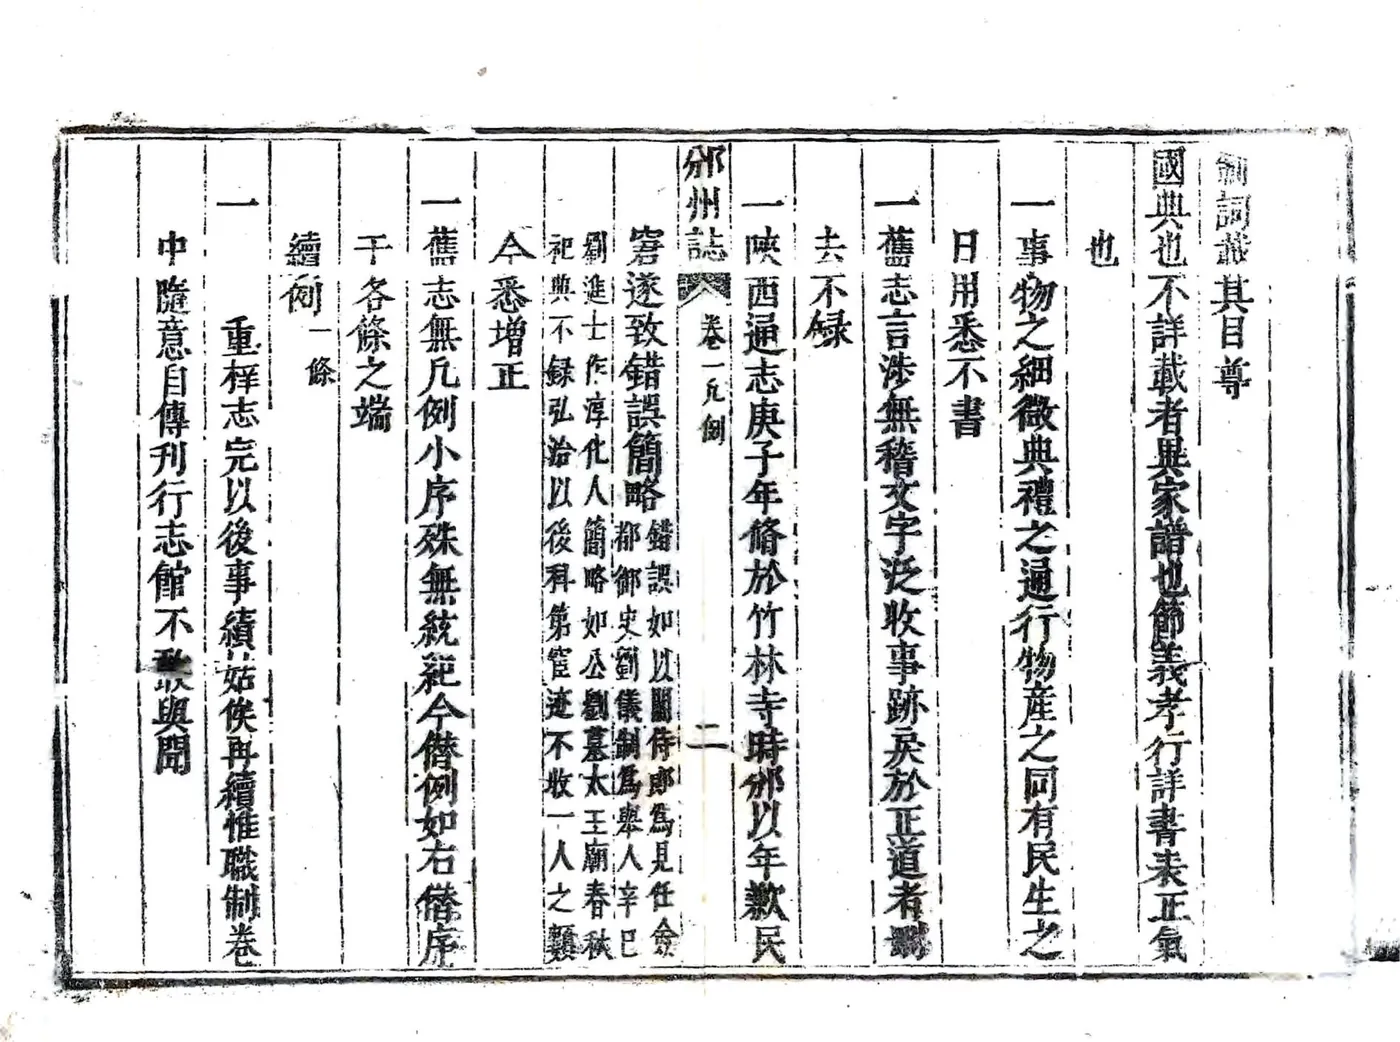 詞其目尊
國典也不詳載者異家譜也節義孝行詳書表正氣
也
一事物之細微典禮之通行物産之同有民生之
日用悉不書
一舊志言涉無稽文字泛收事跡戾於正道者刪
去不録
一陝西通志庚子年脩於竹林寺時邠以年歉民
邠州誌 卷一凡例 二
窘遂致錯誤簡略 錯誤如以閻侍郎爲見任僉
都御史劉儀制爲舉人辛巳
劉進士作淳化人簡略如公劉墓太王廟春秋
祀典不録弘治以後科第宦迹不收一人之類
今悉增正
一舊志無凡例小序殊無統紀今僣例如右僣序
于各條之端
續例 一條
一 重梓志完以後事績姑俟再續惟職制卷
中隨意自傳刊行志館不敢與聞